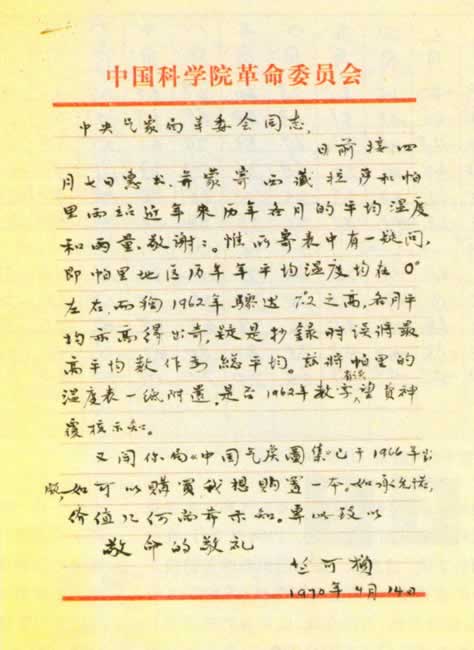 中国科学院革命委员会
中央气象局革委会同志,
日前接四
月七日惠书,并蒙寄西藏拉萨和帕
里两站近年来历年各月的平均温度
和雨量,敬谢:。惟所寄表中有一疑问,
即帕里地区历年年平均温度均在0°
左右,而独1962年骤达 之高,各月平
均亦高得出奇,疑是抄録时误将最
高平均数作为總平均。兹将帕里的
温度表一纸附還,是否1962年数字有误,望費神
覆核示知。
又闻你局《中国气候圖集》已于1966年出
版,如可以購買我想购置一本。如承允諾,
价值几何尚希示知。專此致以
敬命的敬礼
竺可桢
1970年4月14日